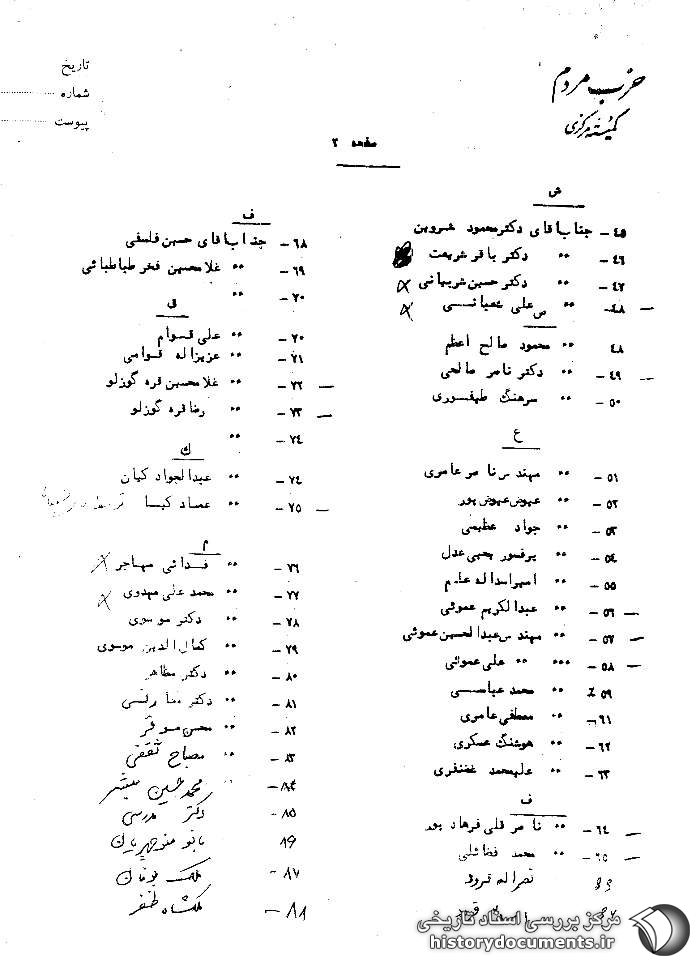 حزب مردم
کمیته مرکزی
تاریخ
شماره
پیوست
صفحه ۳
ش
۴۵- جناب آقای دکتر محمود شروین
۴۶- " دکتر باقر شریعت
۴۷- " دکتر حسین شریهانی
۴۸- " علی شعبانی
ص
۴۸ " محمود صالح اعظم
۴۹- " دکتر ناصر صالحی
۵۰- " سرهنگ طهفسوری
ع
۵۱- " مهندس ناصر عامری
۵۲- " عیوض عیوض پور
۵۳- " جواد عظیمی
۵۴- " پرفسور یحیی عدل
۵۵- " امیر اسداله علم
۵۶- " عبدالکریم عموئی
۵۷- " مهندس عبدالحسین عموئی
۵۸- " " علی عموئی
۵۹ " محمد عباسی
۶۱- " مصطفی عامری
۶۲- " هوشنگ عسکری
۶۳- " علیمحمد غضنفری
ف
۶۴- " ناصرقلی فرهادپور
۶۵- " محمد فضائلی
نصراله
ف
۶۸- جناب آقای حسین فلسفی
۶۹- " غلامحسین فخر طباطبائی
۷۰- "
ق
۷۰- " علی قوام
۷۱- " عزیزاله قوامی
۷۲- " غلامحسین قره گوزلو
۷۳- " رضا قره گوزلو
۷۴- "
ك
۷۴- " عبدالجواد کیان
۷۵- " عماد کیا
م
۷۶- " فدائی مهاجر
۷۷- " محمد علی مهدوی
۷۸- " دکتر موسوی
۷۹- " کمال الدین موسوی
۸۰- " دکتر مظاهر
۸۱- " دکتر
۸۲- " محسن موقر
۸۳- " مصباح ثقفی
۸۴- " محمد حسین مبشر
۸۵- دکتر مدرسی
۸۶ بانو منوچهریان
۸۷- ملک
۸۸- ملکشاه ظفر
مرکز بررسی اسناد تاریخی
historydocuments.ir